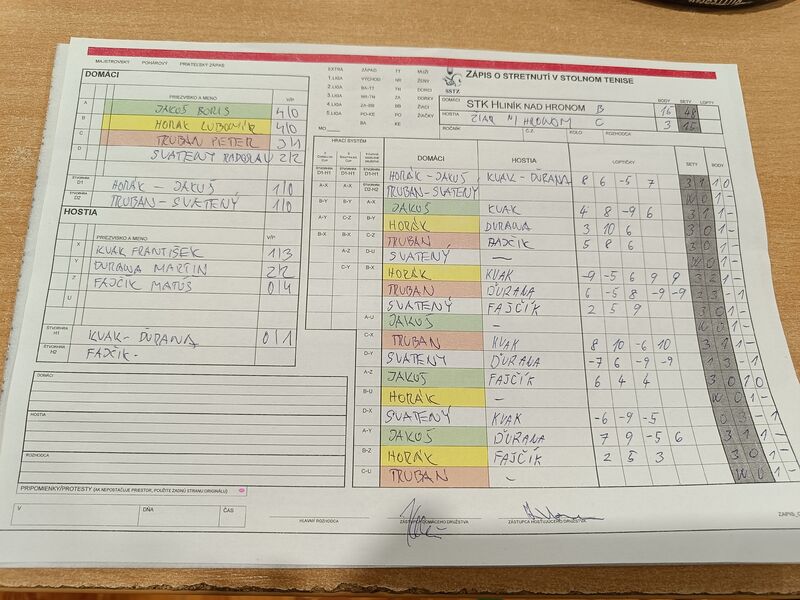 MAJSTROVSKÝ POHÁROVÝ PRIATEĽSKÝ ZÁPAS
DOMÁCI
PRIEZVISKO A MENO V/P
A JAKUŠ BORIS 4/0
B HORÁK ĽUBOMÍR 4/0
C TRUBAN PETER 3/1
D SVATENÝ RADOSLAV 2/2
ŠTVORHRA D1 HORÁK - JAKUŠ 1/0
ŠTVORHRA D2 TRUBAN - SVATENÝ 1/0
HOSTIA
PRIEZVISKO A MENO V/P
X KVAK FRANTIŠEK 1/3
Y ĎURANA MARTIN 2/2
Z FAJČÍK MATÚŠ 0/4
U
ŠTVORHRA H1 KVAK - ĎURANA 0/1
ŠTVORHRA H2 FAJČÍK -
DOMÁCI
HOSTIA
ROZHODCA
PRIPOMIENKY/PROTESTY (AK NEPOSTAČUJE PRIESTOR, POUŽITE ZADNÚ STRANU ORIGINÁLU)
V DŇA ČAS
EXTRA ZÁPAD TT MUŽI
1.LIGA VÝCHOD NR ŽENY
2.LIGA BA-TT TN DORCI
3.LIGA NR-TN ZA DORKY
4.LIGA ZA-BB BB ŽIACI
5.LIGA PO-KE PO ŽIAČKY
BA KE
MO
SSTZ
ZÁPIS O STRETNUTÍ V STOLNOM TENISE
DOMÁCI STK HLINÍK NAD HRONOM B
HOSTIA ŽIAR N/ HRONOM C
BODY SETY LOPTY
16 48
3 15
ROČNÍK Č.Z. KOLO ROZHODCA
HRACÍ SYSTÉM
DOMÁCI HOSTIA LOPTIČKY SETY BODY
HORÁK - JAKUŠ KVAK - ĎURANA 8 6 -5 7 3 1 1 0
TRUBAN - SVATENÝ W 0 1 -
A-X JAKUŠ KVAK 4 8 -9 6 3 1 1 -
B-Y HORÁK ĎURANA 3 10 6 3 0 1 -
TRUBAN FAJČÍK 5 8 6 3 0 1 -
D-U SVATENÝ — W 0 1 -
B-X HORÁK KVAK -9 -5 6 9 9 3 2 1 -
TRUBAN ĎURANA 6 -5 8 -9 -9
SVATENÝ FAJČÍK 2 5 9 3 0 1 -
A-U JAKUŠ - W 0 1 -
C-X TRUBAN KVAK 8 10 -6 10 3 1 1 -
D-Y SVATENÝ ĎURANA -7 6 -9 -9 1 3 - 1
A-Z JAKUŠ FAJČÍK 6 4 4 3 0 1 0
B-U HORÁK - W 0 1 -
D-X SVATENÝ KVAK -6 -9 -5 0 3 - 1
A-Y JAKUŠ ĎURANA 7 9 -5 6 3 1 1 -
B-Z HORÁK FAJČÍK 2 5 3 3 0 1 -
C-U TRUBAN - W 0 1 -
HLAVNÝ ROZHODCA ZÁSTUPCA DOMÁCEHO DRUŽSTVA ZÁSTUPCA HOSŤUJÚCEHO DRUŽSTVA